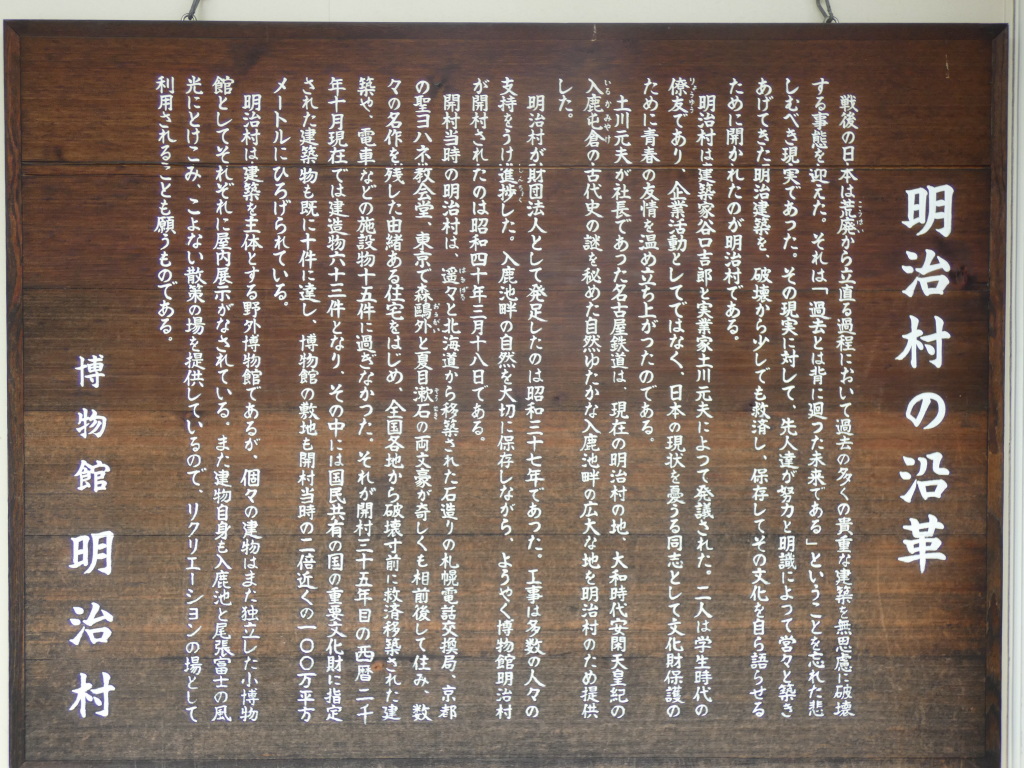 明治村の沿革
戦後の日本は荒廃から立直る過程において過去の多くの貴重な建築を無思慮に破壊
する事態を迎えた。それは「過去とは背に廻つた未来である」ということを忘れた悲
しむべき現実であつた。その現実に対して、先人達が努力と明識によつて営々と築き
あげてきた明治建築を、破壊から少しでも救済し、保存してその文化を自ら語らせる
ために開かれたのが明治村である。
明治村は建築家谷口吉郎と実業家土川元夫によつて発議された。二人は学生時代の
僚友であり、企業活動としてではなく、日本の現状を憂うる同志として文化財保護の
ために青春の友情を温め立ち上がつたのである。
土川元夫が社長であつた名古屋鉄道は、現在の明治村の地、大和時代安閑天皇紀の
入鹿屯倉の古代史の謎を秘めた自然ゆたかな入鹿池畔の広大な地を明治村のため提供
した。
明治村が財団法人として発足したのは昭和三十七年であつた。工事は多数の人々の
支持をうけ進捗した。入鹿池畔の自然を大切に保存しながら、ようやく博物館明治村
が開村されたのは昭和四十年三月十八日である。
開村当時の明治村は、遥々と北海道から移築された石造りの札幌電話交換局、京都
の聖ヨハネ教会堂、東京で森鷗外と夏目漱石の両文豪が奇しくも相前後して住み、数
々の名作を残した由緒ある住宅をはじめ、全国各地から破壊寸前に救済移築された建
築や、電車などの施設物十五件に過ぎなかつた。それが開村三十五年目の西暦二千
年十月現在では建造物六十三件となり、その中には国民共有の国の重要文化財に指定
された建築物も既に十件に達し、博物館の敷地も開村当時の二倍近くの一〇〇万平方
メートルにひろげられている。
明治村は建築を主体とする野外博物館であるが、個々の建物はまた独立した小博物
館としてそれぞれに屋内展示がなされている。また建物自身も入鹿池と尾張富士の風
光にとけこみ、こよない散策の場を提供しているので、リクリエーションの場として
利用されることも願うものである。
博物館 明治村